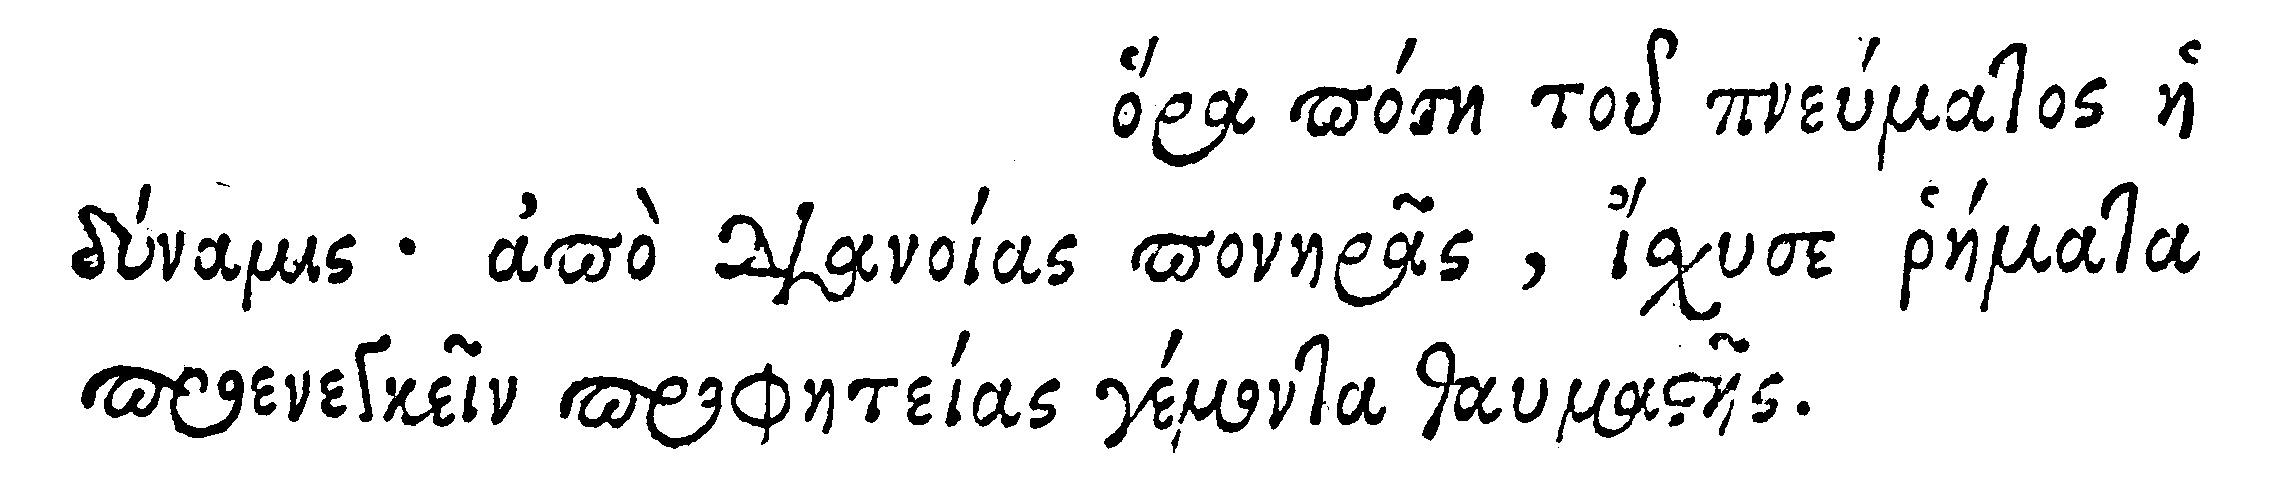 ὅρα πόση τοῦ πνεύματος ἡ
δύναμις· ἀπὸ διανοίας πονηρᾶς, ἴσχυσε ῥήματα
προσενεγκεῖν προφητείας γέμοντα θαυμαστῆς.